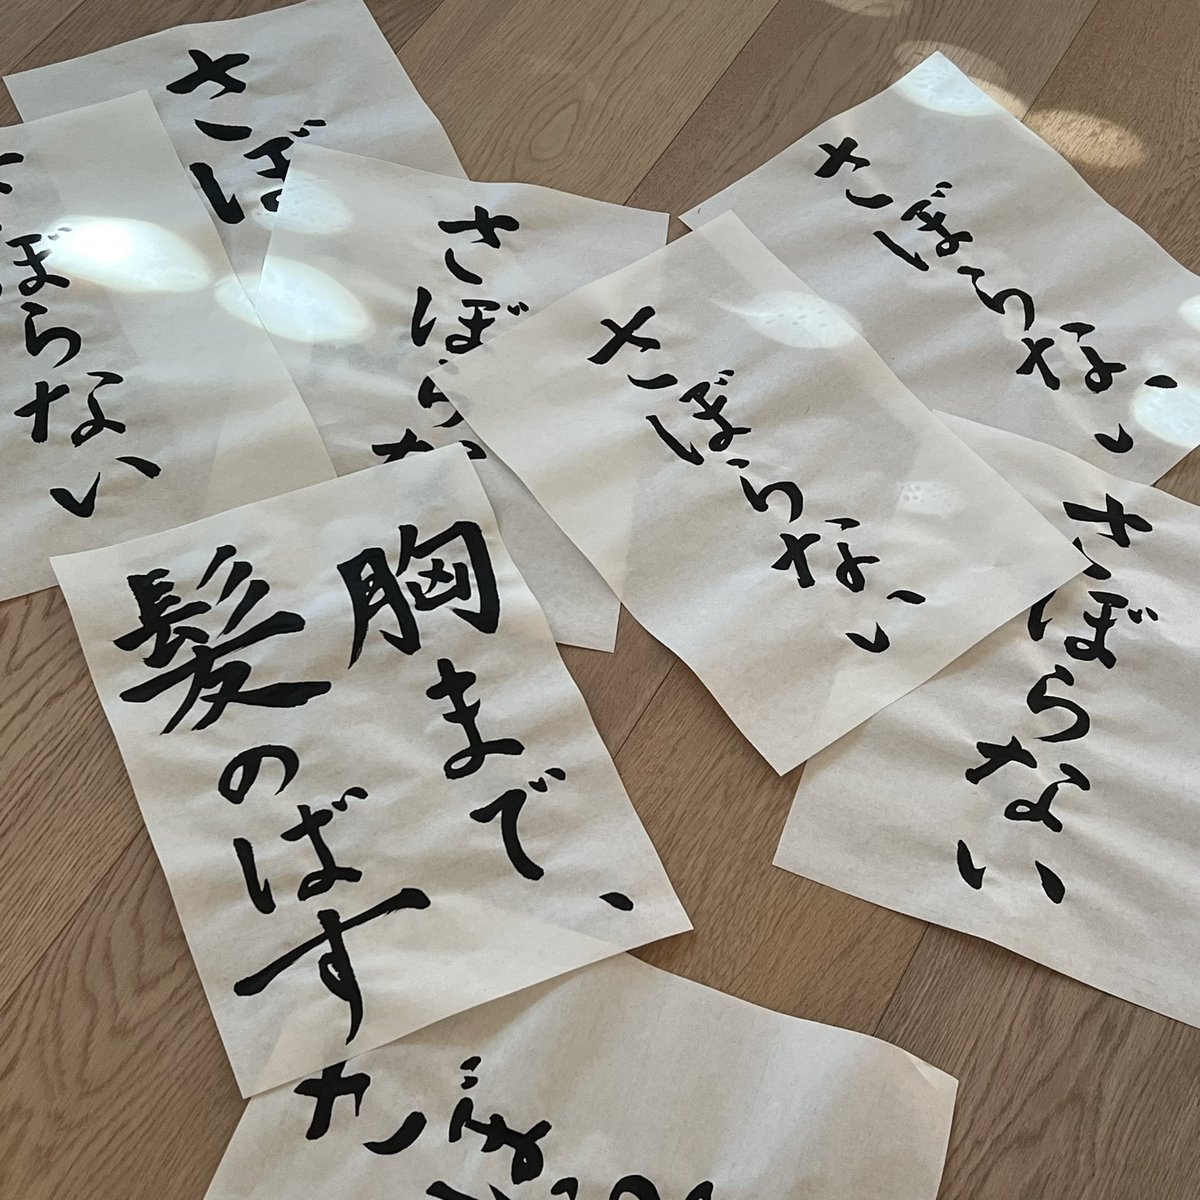 さぼ
ぼらない
さぼらな
さぼらない
さぼらない
さぼらない
胸まで、
髪のばす
さぼ